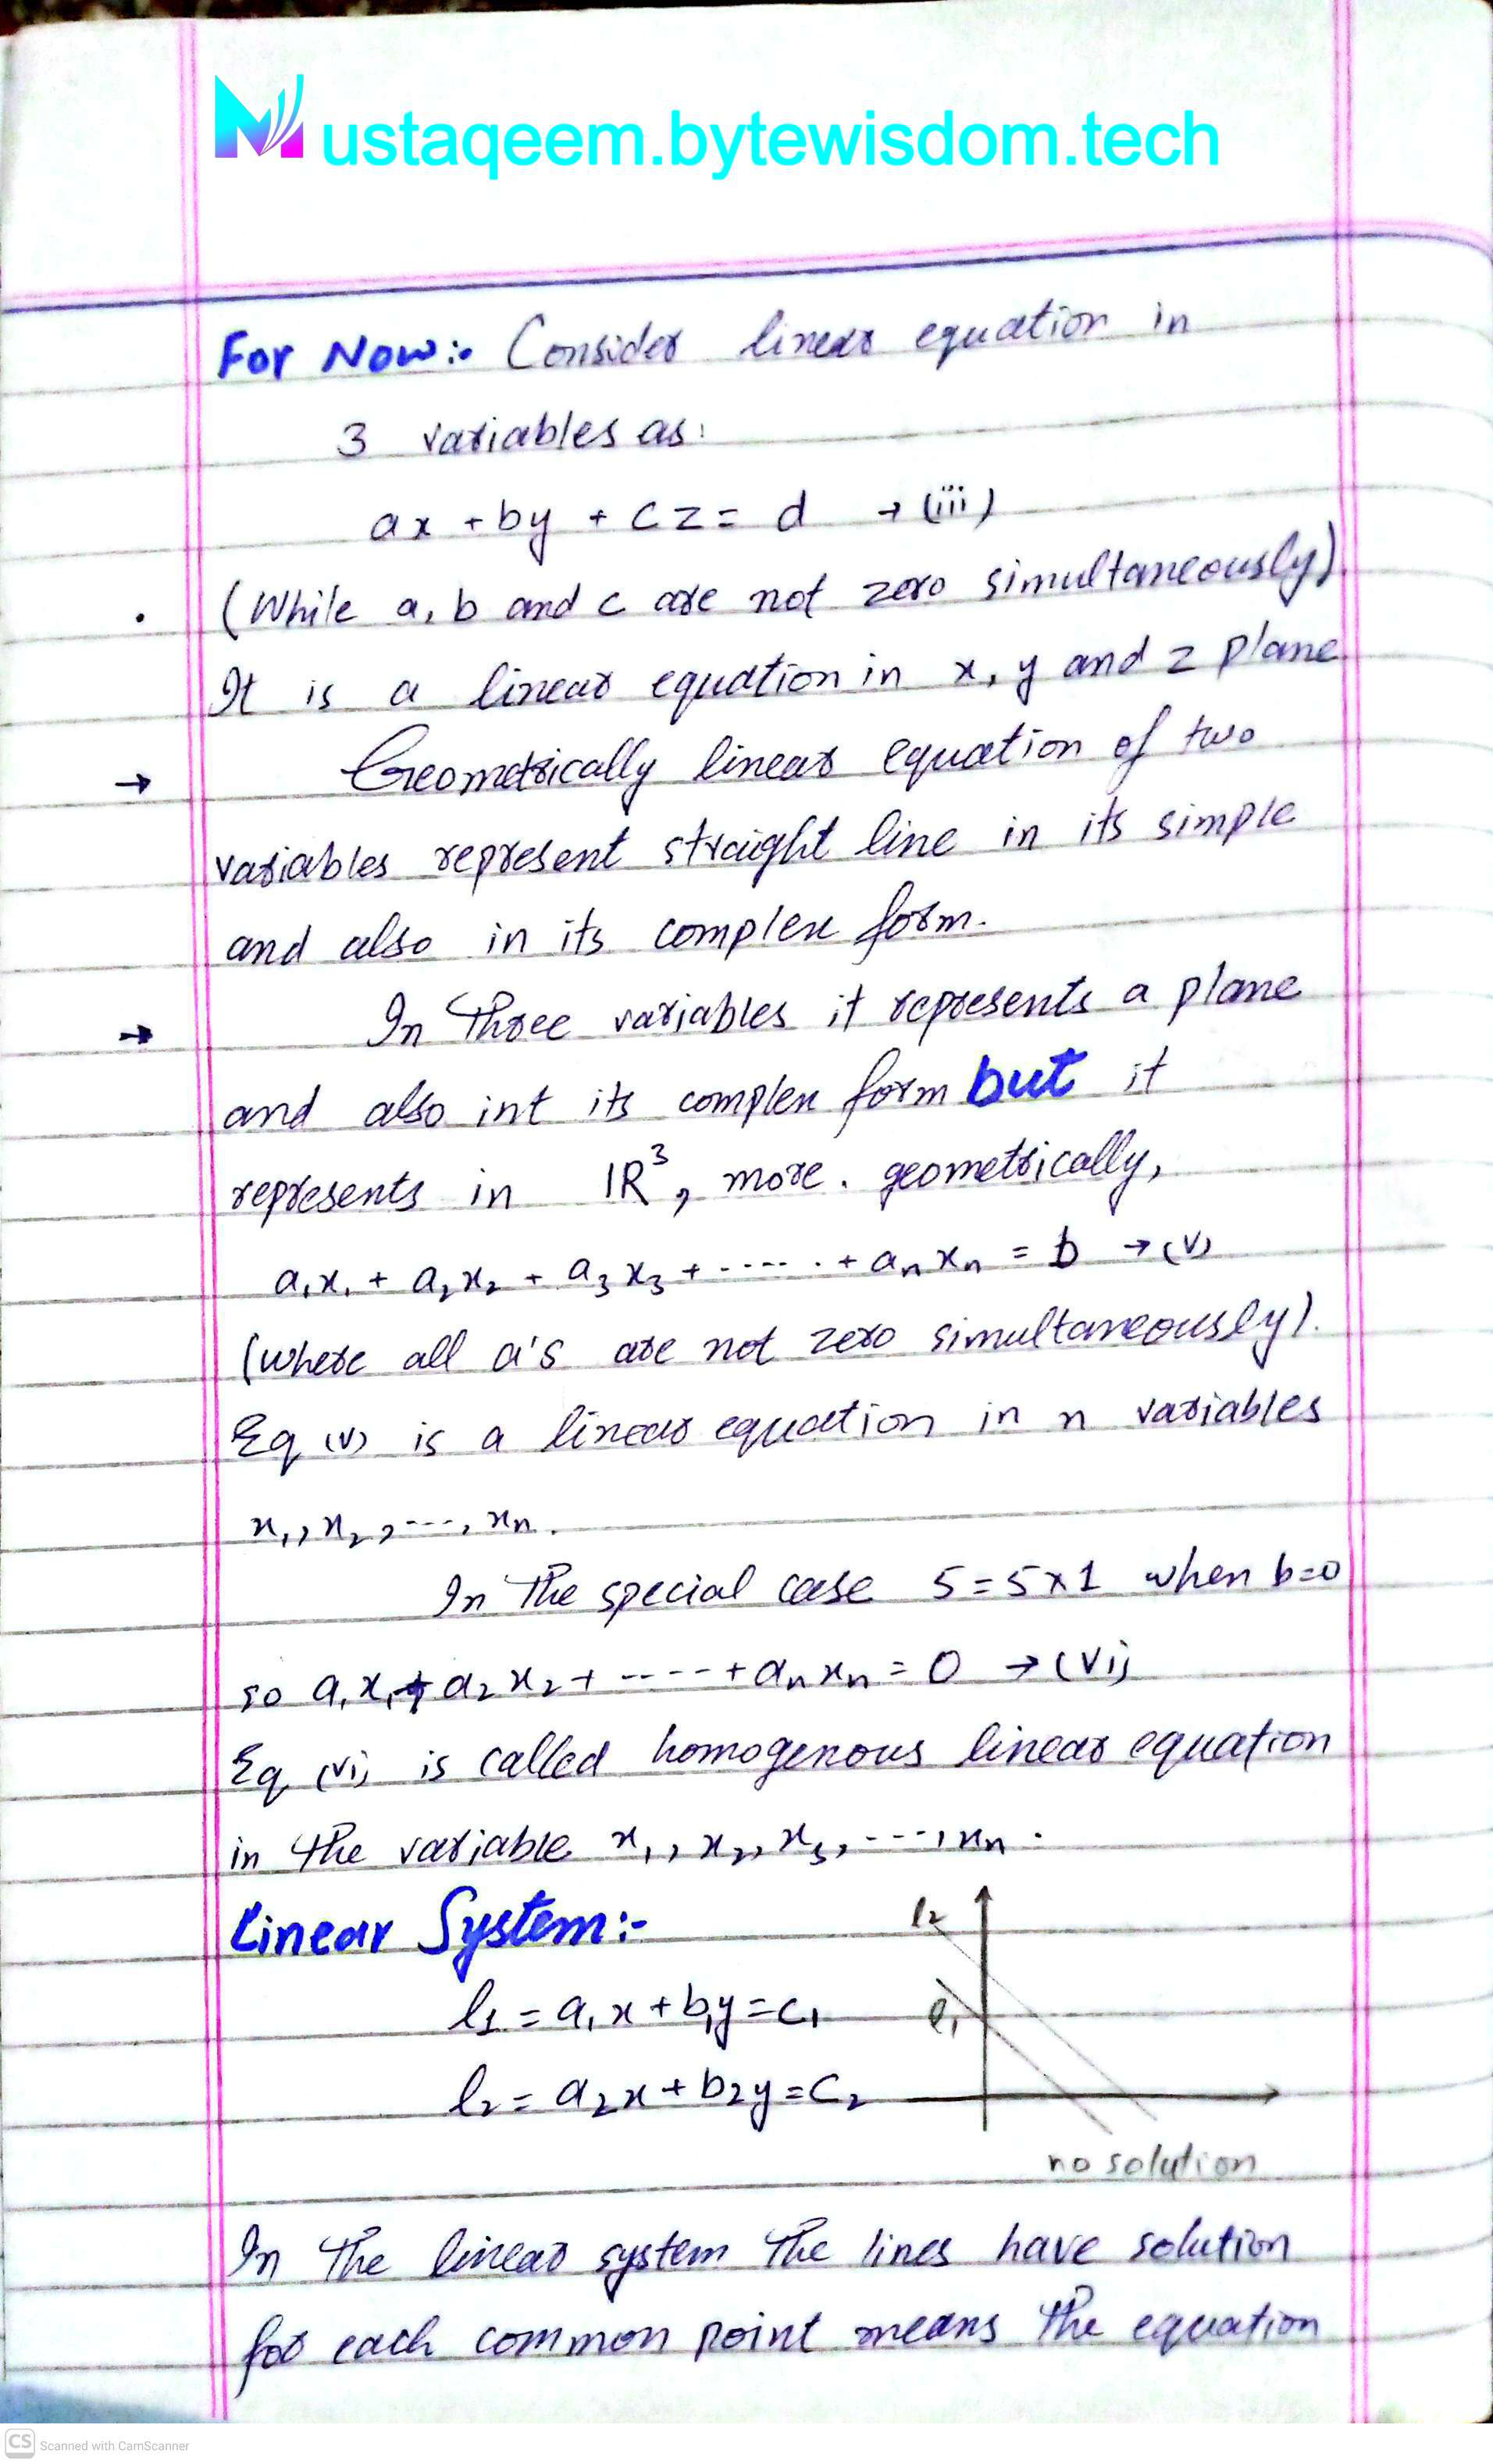 Mustaqeem.bytewisdom.tech
For Now:- Consider linear equation in
3 variables as:
ax + by + cz = d → (iii)
(While a, b and c are not zero simultaneously).
It is a linear equation in x, y and z plane.
→ Geometrically linear equation of two
variables represent straight line in its simple
and also in its complex form.
→ In Three variables it represents a plane
and also int its complex form but it
represents in ℝ³, more. geometrically,
a₁x₁ + a₂x₂ + a₃x₃ + ------ + aₙxₙ = b → (v)
(where all a's are not zero simultaneously).
Eq (v) is a linear equation in n variables
x₁, x₂, ---, xₙ.
In The special case 5 = 5x1 when b=0
so a₁x₁ + a₂x₂ + ---- + aₙxₙ = 0 → (vi)
Eq (vi) is called homogenous linear equation
in the variable x₁, x₂, x₃, ---, xₙ.
Linear System:-
l₂
l₁ = a₁x + b₁y = c₁
l₁
l₂ = a₂x + b₂y = c₂
no solution
In The linear system The lines have solution
for each common point means the equation
CS Scanned with CamScanner